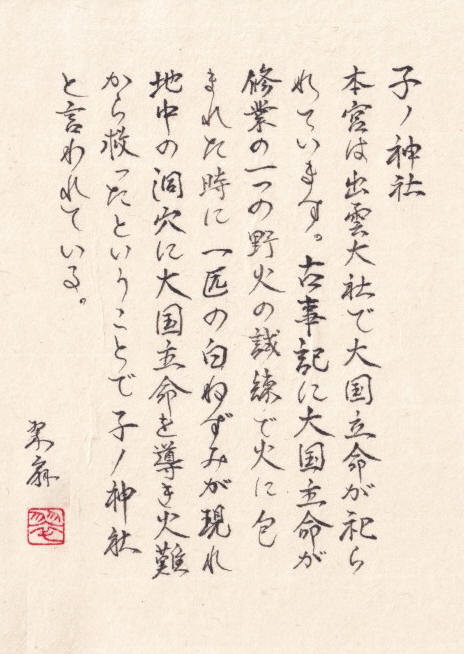 子ノ神社
本宮は出雲大社で大国立命が祀ら
れています。古事記に大国主命が
修業の一つの野火の試練で火に包
まれた時に一匹の白ねずみが現れ
地中の洞穴に大国主命を導き火難
から救ったということで子ノ神社
と言われている。